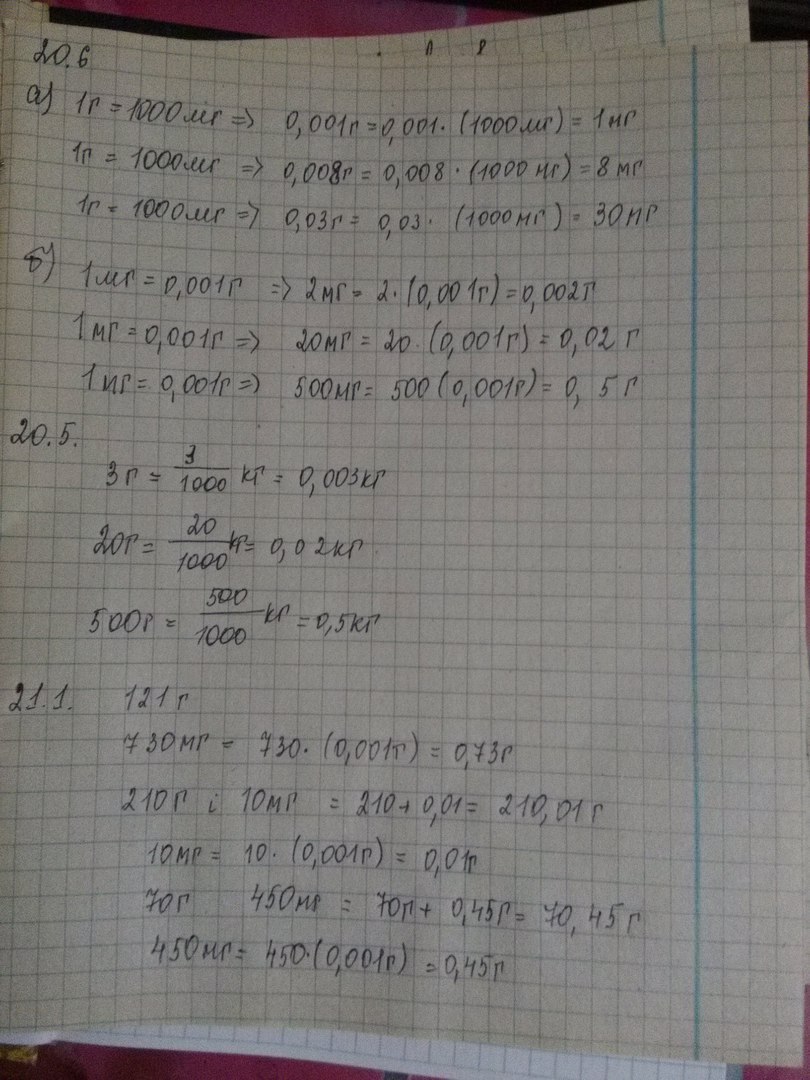 20.6
а) 1г = 1000мг => 0,001г = 0,001 · (1000мг) = 1мг
1г = 1000мг => 0,008г = 0,008 · (1000мг) = 8мг
1г = 1000мг => 0,03г = 0,03 · (1000мг) = 30мг
б) 1мг = 0,001г => 2мг = 2 · (0,001г) = 0,002г
1мг = 0,001г => 20мг = 20 · (0,001г) = 0,02г
1мг = 0,001г => 500мг = 500 (0,001г) = 0,5г
20.5.
3г = 3/1000 кг = 0,003кг
20г = 20/1000 кг = 0,02кг
500г = 500/1000 кг = 0,5кг
21.1. 121г
730мг = 730 · (0,001г) = 0,73г
210г і 10мг = 210 + 0,01 = 210,01г
10мг = 10 · (0,001г) = 0,01г
70г 450мг = 70г + 0,45г = 70,45г
450мг = 450 · (0,001г) = 0,45г